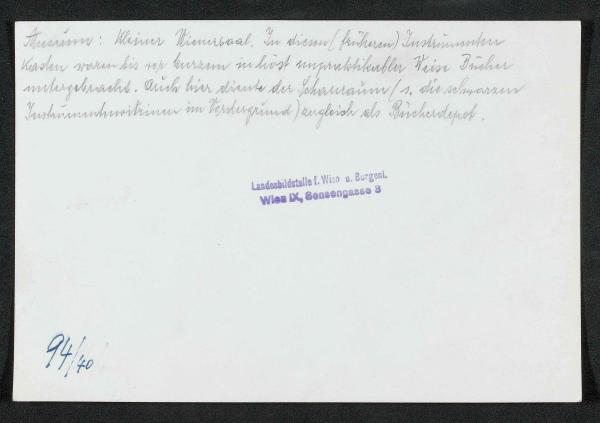 Museum: Kleiner Wienersaal. In diesen (früheren) Instrumenten
kasten waren bis vor kurzem in höst unpraktikabler Weise Bücher
untergebracht. Auch hier diente der Schauraum (s. die schwarzen
Instrumentenvitrinen im Vordergrund) zugleich als Bücherdepot.
Landesbildstelle f. Wien u. Burgenl.
Wien IX, Sensengasse 3
94/40